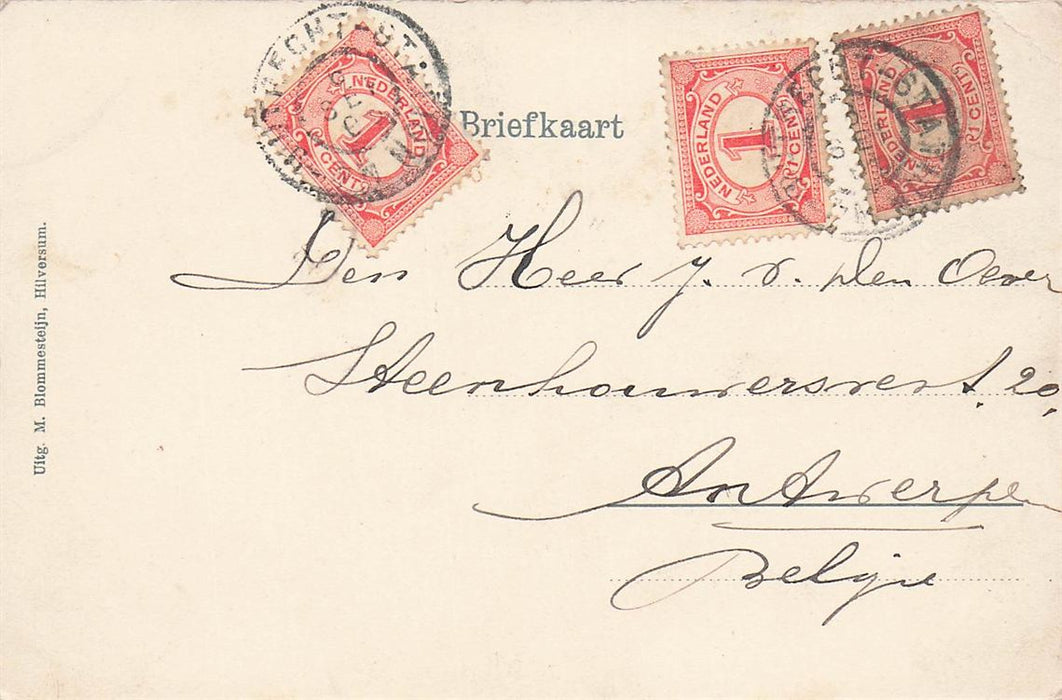 Briefkaart
NEDERLAND
1
CENT
NEDERLAND
1
1 CENT
NEDERLAND
1
1 CENT
Den Heer J. v. den Oever
Steenhouwersvest 20,
Antwerpen
Belgie
Uitg. M. Blommesteijn, Hilversum.